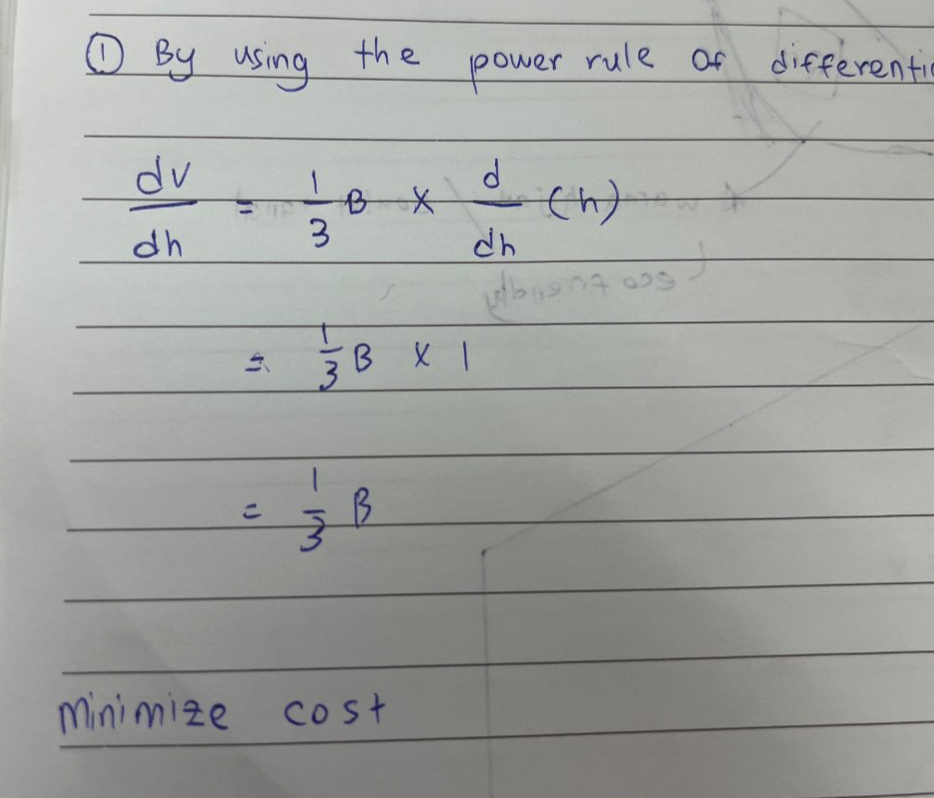 ① By using the power rule of differentia
dv/dh = 1/3 B × d/dh (h)
= 1/3 B × 1
= 1/3 B
Minimize cost